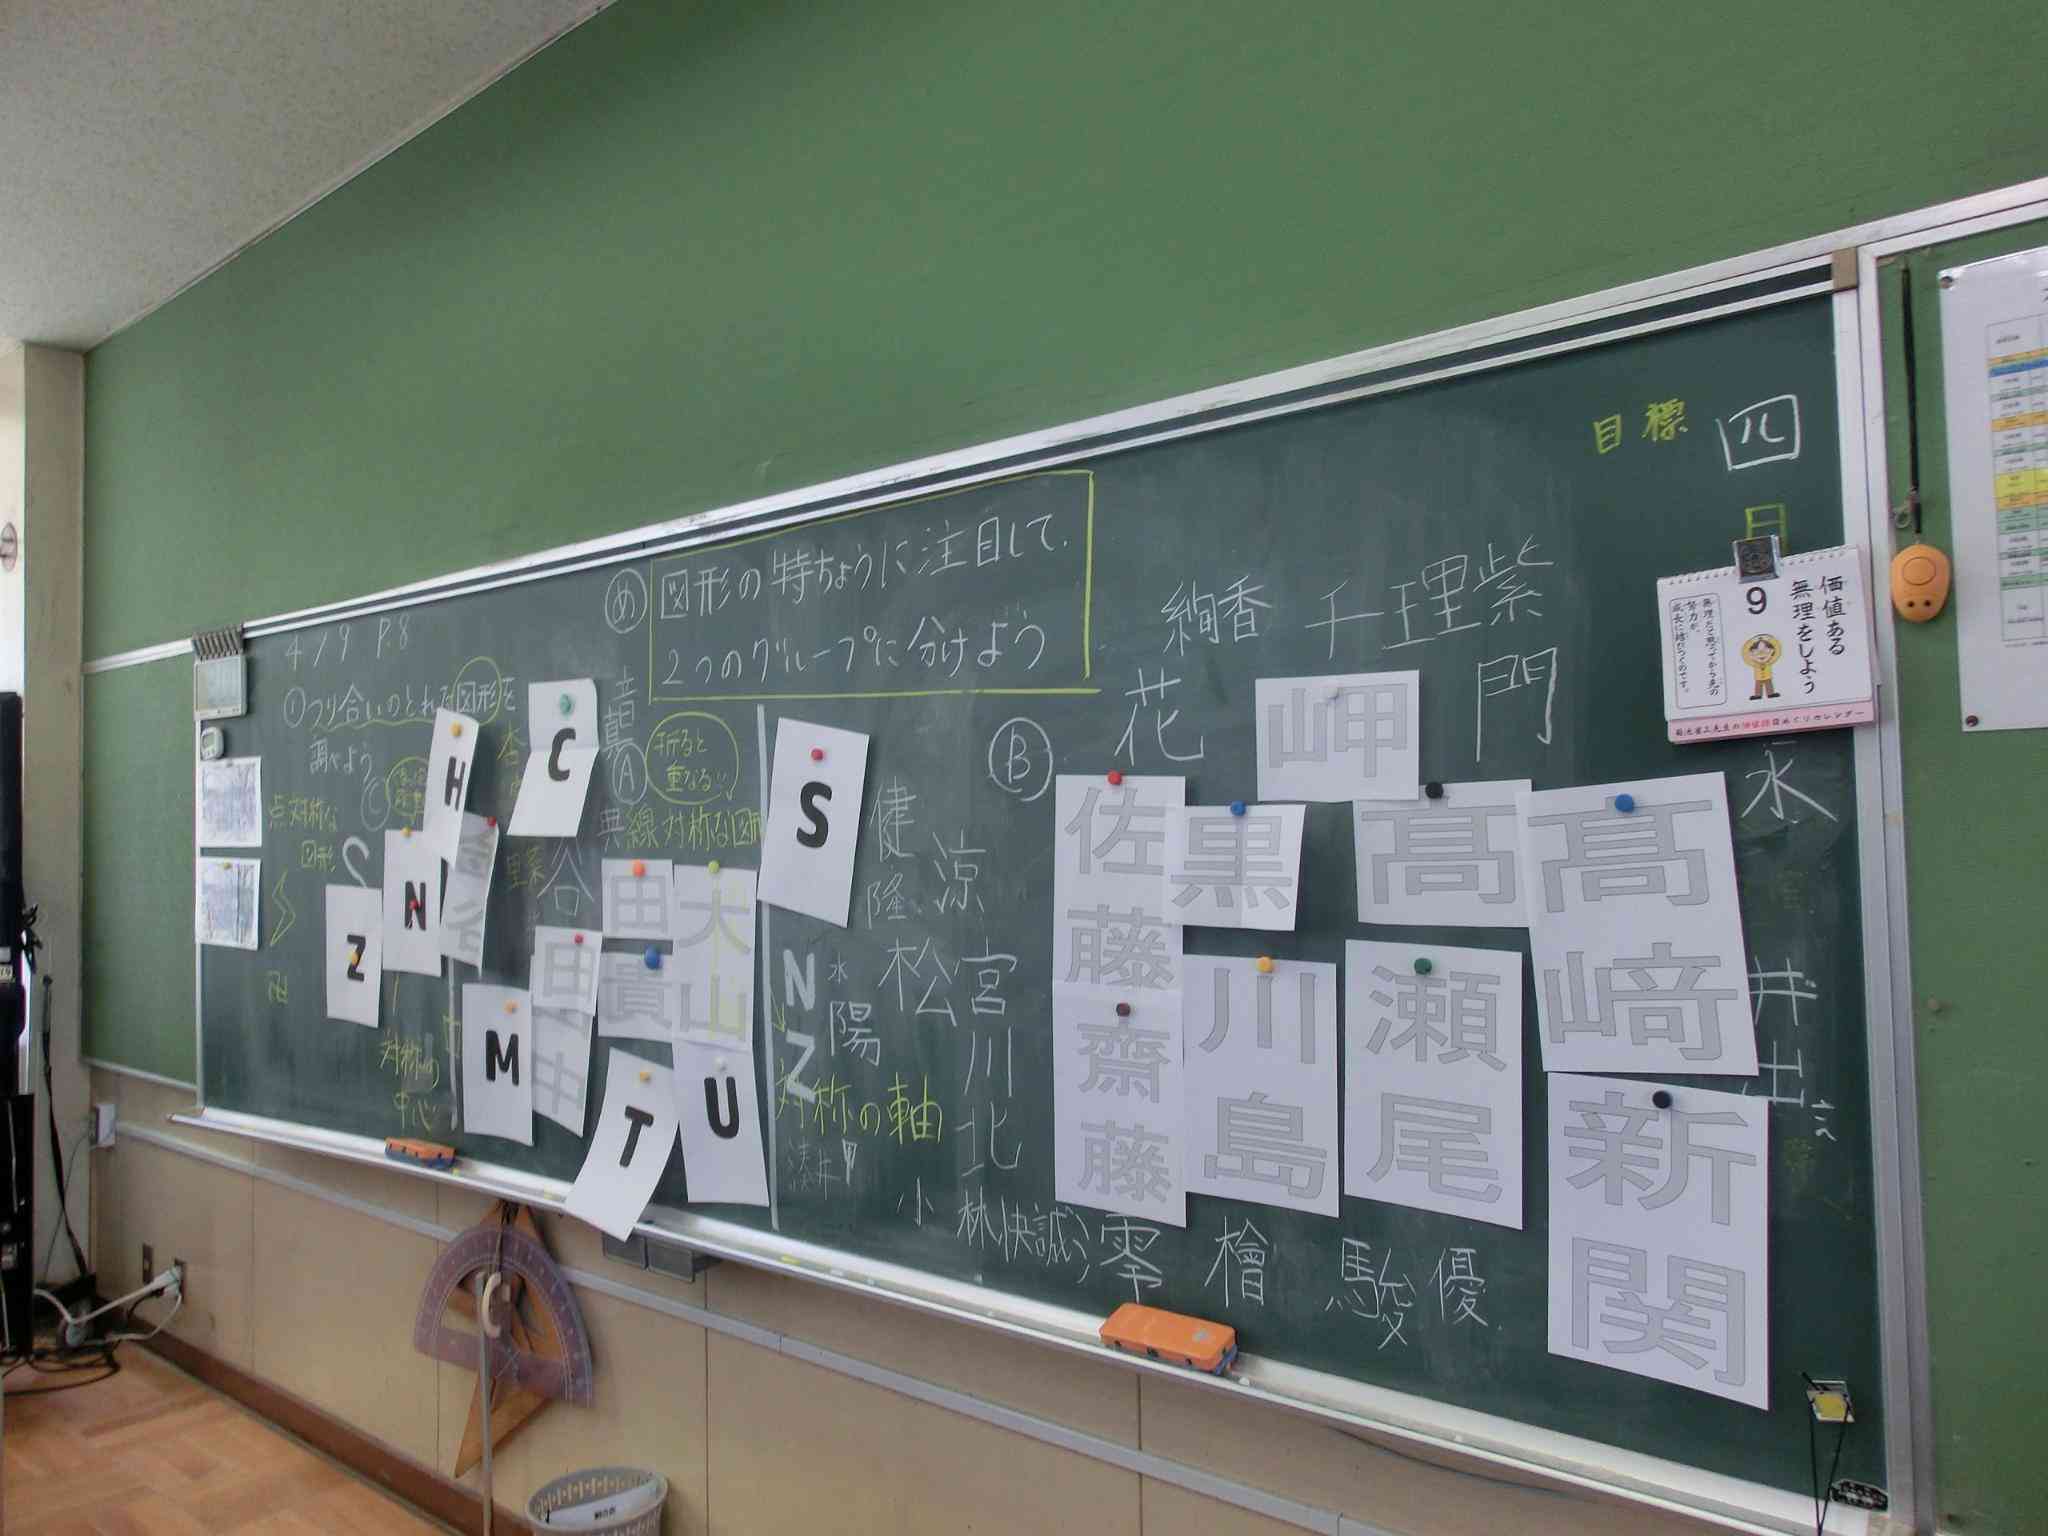 目標
四
日
9
価値ある
無理をしよう
水
井出
め
図形の特ちょうに注目して、
2つのグループに分けよう
4/9 P.8
①つり合いのとれた図形を
調べよう
A
折ると
重なる
線対称な図形
B
C
点対称な
図形
対称の
中心
対称の軸
H
C
S
N
Z
M
T
U
N
Z
谷
田
貴
犬山
田中
健
隆
涼
松
宮
川
北
陽
水
湊
小林
快誠
絢香
千理
紫
花
岬
門
佐藤
齋藤
黒
川島
髙
瀬尾
髙﨑
新関
零
檜
駿
優